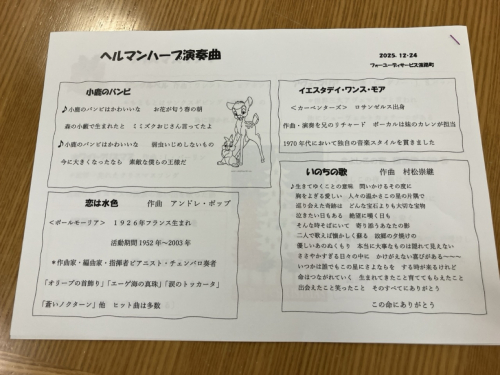 ヘルマンハープ演奏曲
2025.12-24
フォーユーデイサービス淡路町
小鹿のバンビ
♪小鹿のバンビはかわいいな　お花が匂う春の朝
森の小藪で生まれたと　ミミズクおじさん言ってたよ
♪小鹿のバンビはかわいいな　弱虫いじめしないもの
今に大きくなったなら　素敵な僕らの王様だ
恋は水色　作曲　アンドレ・ポップ
<ポールモーリア>　1926年フランス生まれ
活動期間1952年～2003年
*作曲家・編曲家・指揮者ピアニスト・チェンバロ奏者
「オリーブの首飾り」「エーゲ海の真珠」「涙のトッカータ」
「蒼いノクターン」他　ヒット曲は多数
イエスタデイ・ワンス・モア
<カーペンターズ>　ロサンゼルス出身
作曲・演奏を兄のリチャード　ボーカルは妹のカレンが担当
1970年代において独自の音楽スタイルを貫きました
いのちの歌　作曲　村松崇継
♪生きてゆくことの意味　問いかけるその度に
胸をよぎる愛しい　人々の温かさこの星の片隅で
巡り会えた奇跡は　どんな宝石よりも大切な宝物
泣きたい日もある　絶望に嘆く日も
そんな時そばにいて　寄り添うあなたの影
二人で歌えば懐かしく蘇る　故郷の夕焼けの
優しいあのぬくもり　本当に大事なものは隠れて見えない
ささやかすぎる日々の中に　かけがえない喜びがある～～～～
いつかは誰でもこの星にさよならを　する時が来るけれど
命はつながれていく　生まれてきたこと育ててもらえたこと
出会えたこと笑ったこと　そのすべてにありがとう
この命にありがとう